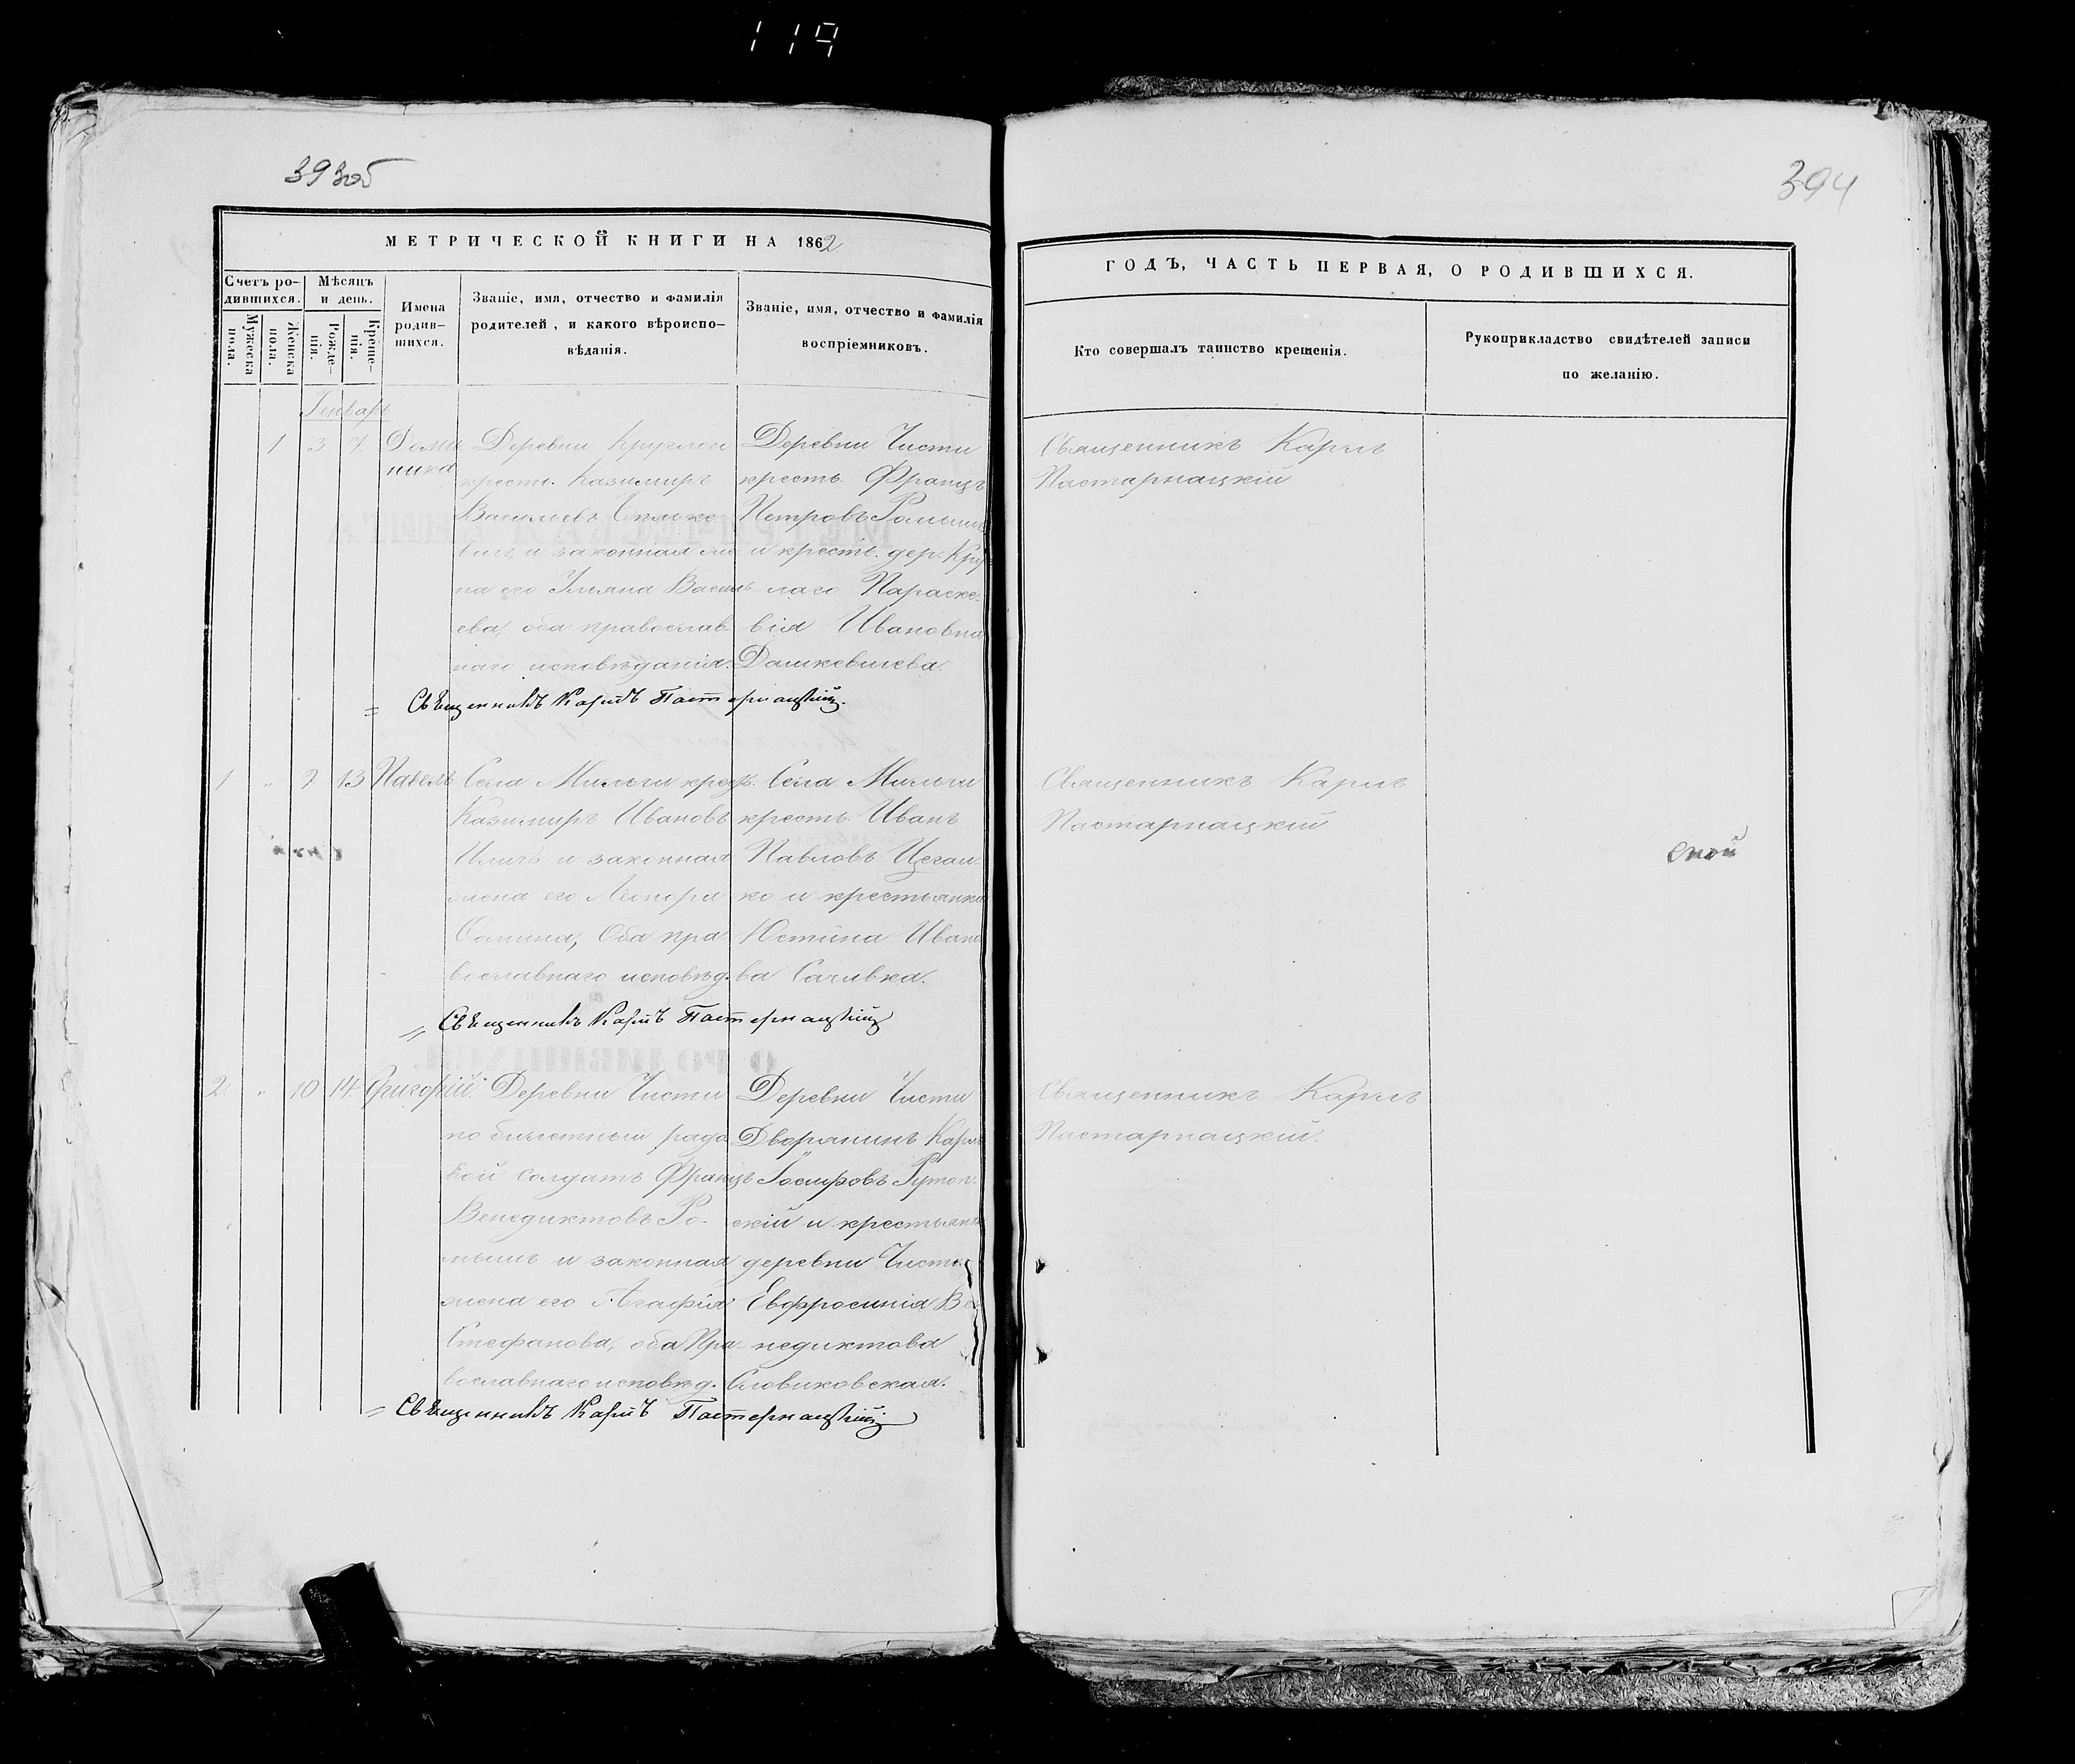 119
393об
394
МЕТРИЧЕСКОЙ КНИГИ НА 1862
ГОДЪ, ЧАСТЬ ПЕРВАЯ, О РОДИВШИХСЯ.
Счетъ ро-
дившихся.
Мужеска
пола.
Женска
пола.
Мѣсяцъ
и день.
Рожде-
нія.
Креще-
нія.
Имена
родив-
шихся.
Званіе, имя, отчество и фамилія
родителей, и какого вѣроиспо-
вѣданія.
Званіе, имя, отчество и фамилія
воспріемниковъ.
Кто совершалъ таинство крещенія.
Рукоприкладство свидѣтелей записи
по желанію.
Генварь
1 3 7. Доми
ника
Деревни Круглаго
крест. Казимиръ
Васильевъ
и законная же
на его Ульяна Василь
ева, оба православ
наго исповѣданія.
Деревни Чисти
крестъ. Францъ
Петровъ
и крестъ. дер. Круг
лаго Параске-
вія Ивановна
Дашкевичева.
Священникъ Карлъ
Пастарнацкій
Священникъ Карлъ Пастернацкій.
1 " 9 13 Павелъ
Села Мильчи крест.
Казимиръ Ивановъ
Иличъ и законная
жена его Леонора
Оба пра-
вославнаго исповѣд.
Села Мильчи
крестъ. Иванъ
Павловъ Цеган-
ко и крестьянка
Юстина Ивано
ва Саливка.
Священникъ Карлъ
Пастарнацкій
ской
Священникъ Карлъ Пастернацкій
2. " 10 14. Григорій.
Деревни Чисти
по билетный рядо
вой солдатъ Францъ
Венедиктовъ Ро-
и законная
жена его Агафія
Стефанова, оба Пра-
вославнаго исповѣд.
Деревни Чисти
Дворянинъ Карлъ
Іосифовъ
скій и крестьянка
деревни Чисти
Евфросинія Ве
недиктова
Словиковская.
Священникъ Карлъ
Пастарнацкій.
Священникъ Карлъ Пастернацкій